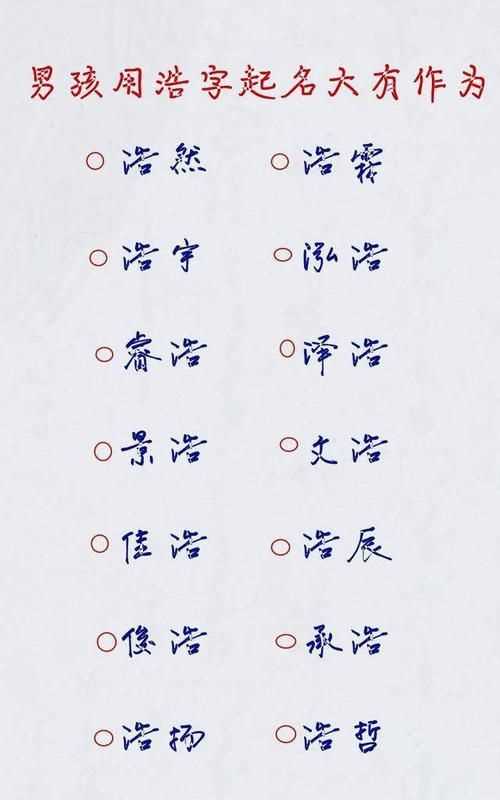 男孩用浩字起名大有作为
浩然 浩霖
浩宇 泓浩
睿浩 泽浩
景浩 文浩
佳浩 浩辰
俊浩 承浩
浩扬 浩哲